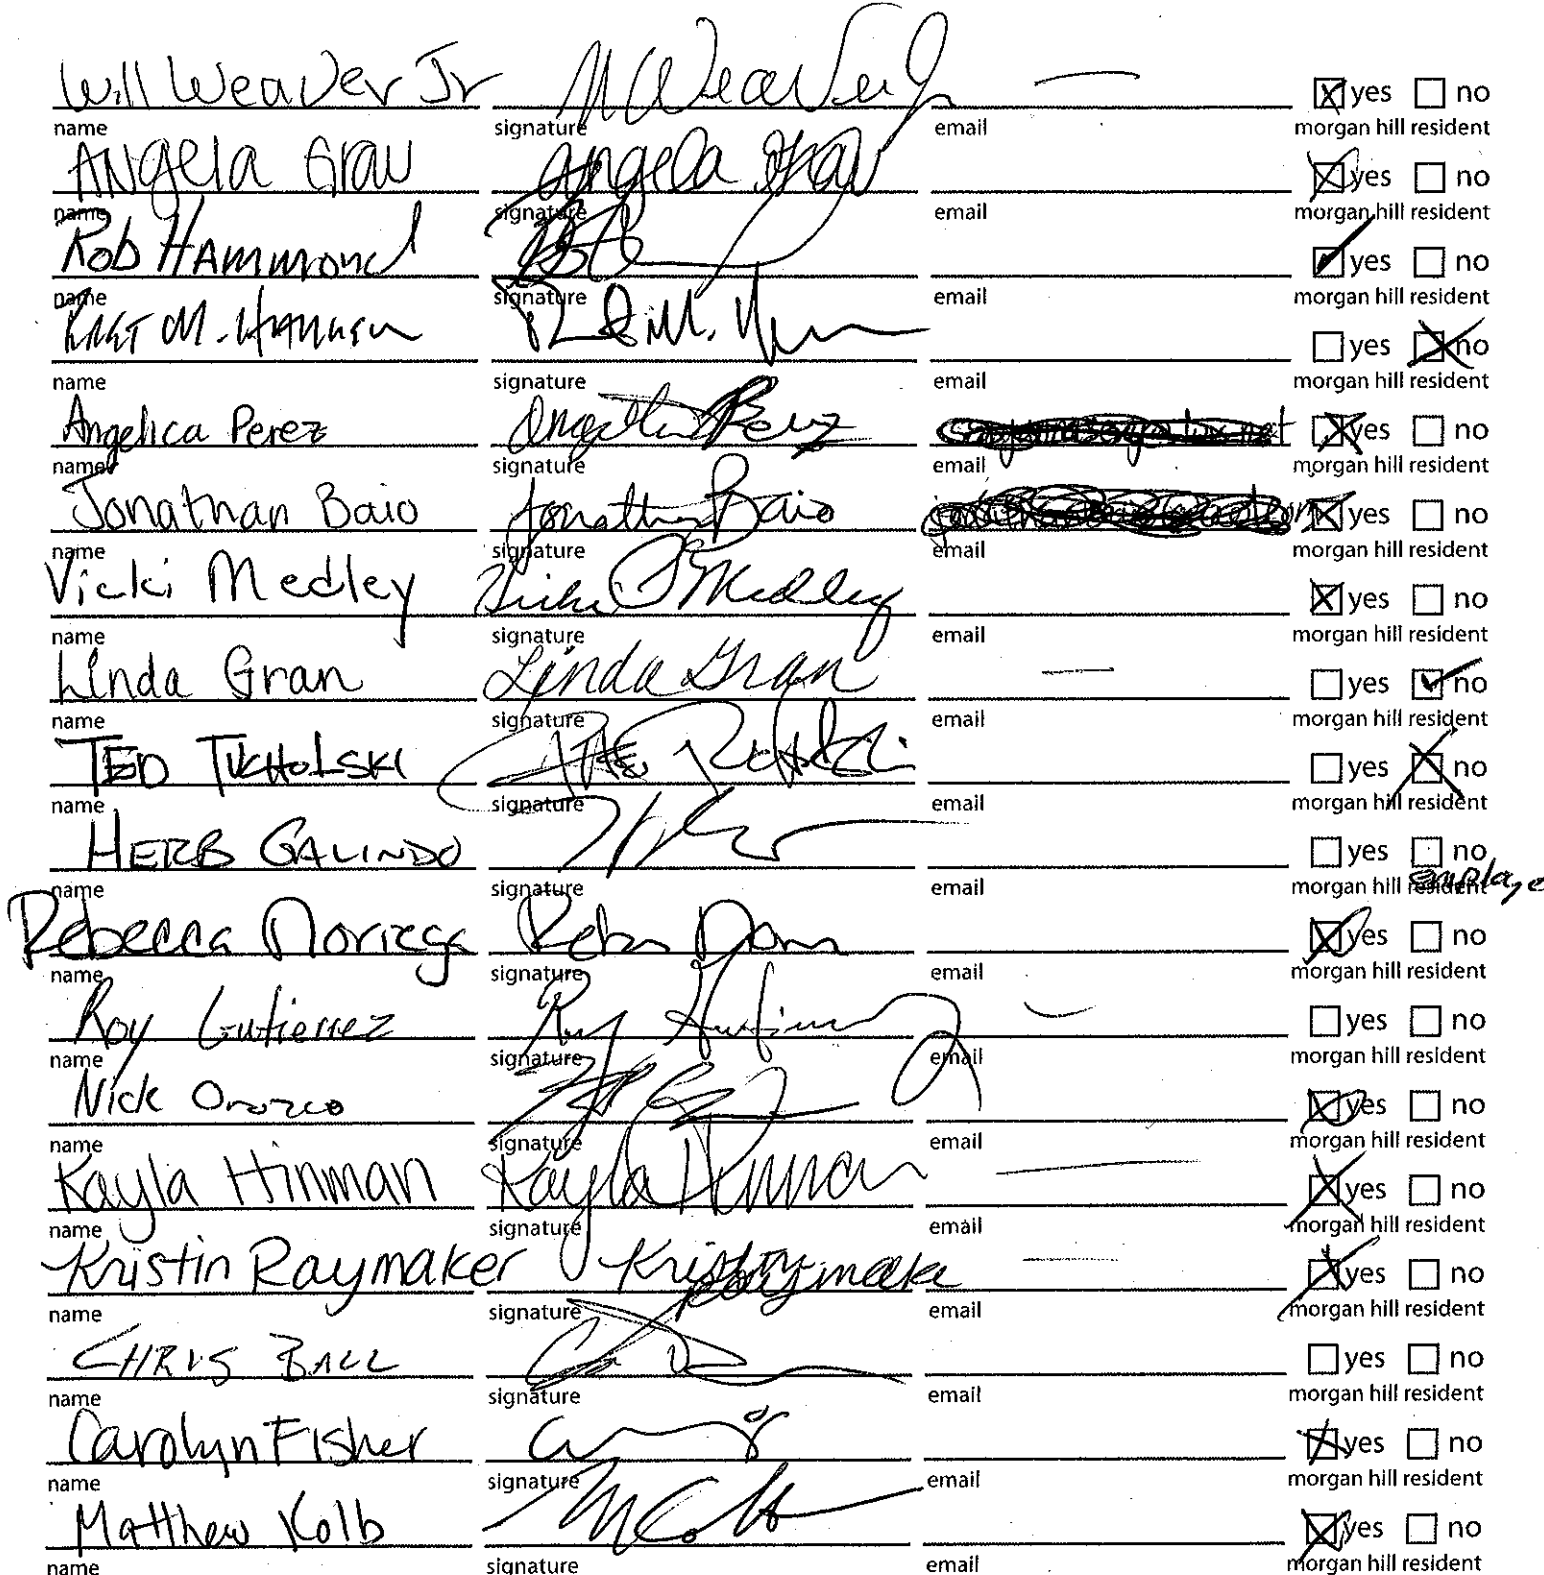 Will Weaver Jr M Weaver Jr — yes no
name signature email morgan hill resident
Angela Grau Angela Grau yes no
name signature email morgan hill resident
Rob Hammond yes no
name signature email morgan hill resident
M. yes no
name signature email morgan hill resident
Angelica Perez Angelica Perez yes no
name signature email morgan hill resident
Jonathan Baio Jonathan Baio yes no
name signature email morgan hill resident
Vicki Medley Vicki Medley yes no
name signature email morgan hill resident
Linda Gran Linda Gran — yes no
name signature email morgan hill resident
TED TUCHOLSKI yes no
name signature email morgan hill resident
HERB GALINDO yes no
name signature email morgan hill resident
Rebecca Noriega yes no
name signature email morgan hill resident
Roy Gutierrez Roy Gutierrez yes no
name signature email morgan hill resident
Nick Orozco yes no
name signature email morgan hill resident
Kayla Hinman Kayla Hinman — yes no
name signature email morgan hill resident
Kristin Raymaker Kristin Raymaker — yes no
name signature email morgan hill resident
CHRIS BALL yes no
name signature email morgan hill resident
Carolyn Fisher yes no
name signature email morgan hill resident
Matthew Kolb yes no
name signature email morgan hill resident